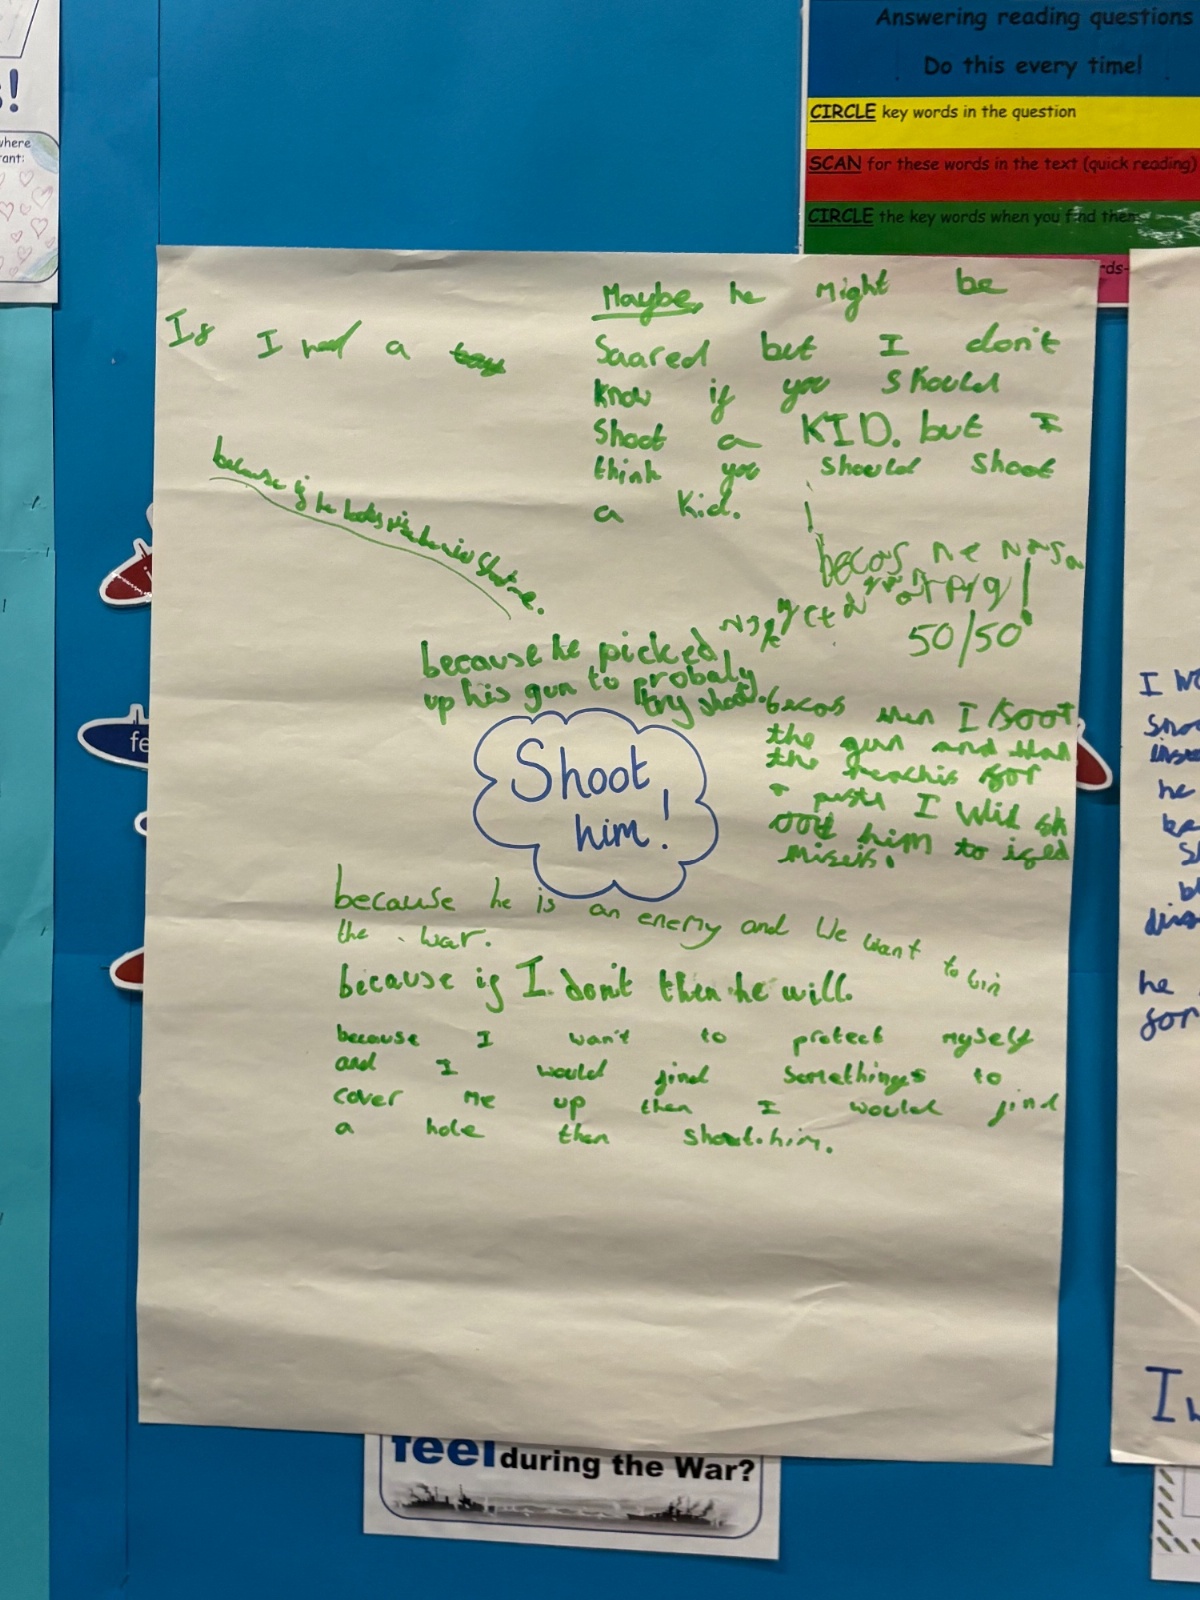 Answering reading questions
Do this every time!
CIRCLE key words in the question
SCAN for these words in the text (quick reading)
CIRCLE the key words when you find them
rds-
s!
where
rant:
Maybe, he might be
Saared but I don't
know if you should
Shoot a KID. but I
think you should shoot
a Kid.
Is I had a
because if he looks
becas he
50/50
because he picked
up his gun to probaly
try shoot.
becos then I soot
the gun and than
the for
a I wlid sh
oot him to
Shoot
him!
fe
because he is an enemy and We want to win
the war.
because if I don't then he will.
because I wan't to protect myself
and I would find somethings to
cover me up then I would find
a hole then shoot him.
I wo
he
he
for
I w
feel during the War?